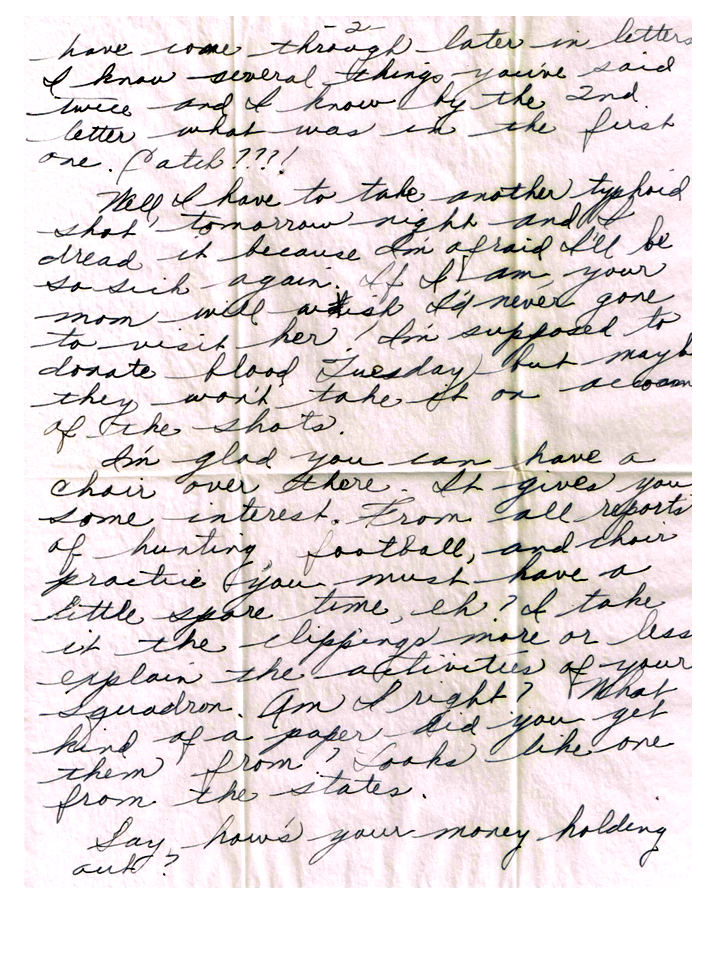 -2-
have come through later in letters
I know several things you've said
twice and I know by the 2nd
letter what was in the first
one. Catch???!
Well, I have to take another typhoid
shot tomorrow night and I
dread it because I'm afraid I'll be
so sick again. If I am, your
mom will wish I'd never gone
to visit her! I'm supposed to
donate blood Tuesday, but mayb
they won't take it on accoun
of the shots.
I'm glad you can have a
choir over there. It gives you
some interest. From all reports
of hunting, football, and choir
practice you must have a
little spare time, eh? I take
it the clippings more or less
explain the activities of your
squadron. Am I right? What
kind of a paper did you get
them from? Looks like one
from the states.
Say, how's your money holding
out?